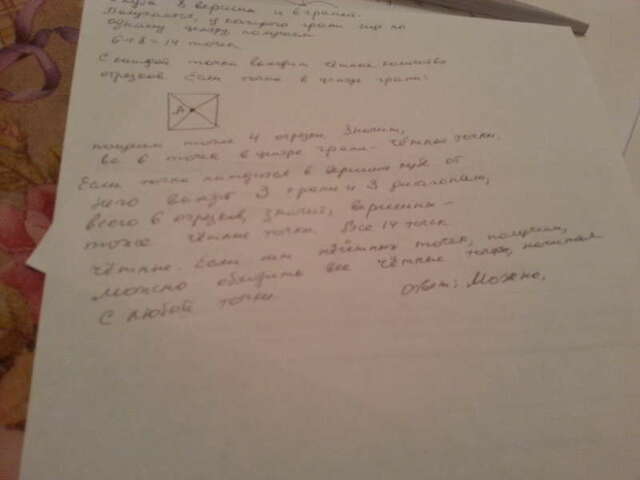 куба 8 вершин и 6 граней.
Получается, у каждого грани еще по
одному центру получим
6+8=14 точек
С каждой точки выходит чётное количество
отрезков. Если точка в центре грани:
A
получим только 4 отрезка. Значит,
все 6 точек в центре грани - чётные точки.
Если точка находится в вершине куба от
него выходят 3 грани и 3 диагонали,
всего 6 отрезков, значит, вершины -
тоже чётные точки. Все 14 точек
чётные. Если нет нечётных точек, получим,
можно обходить все чётные точки, начиная
с любой точки.
Ответ: Можно.